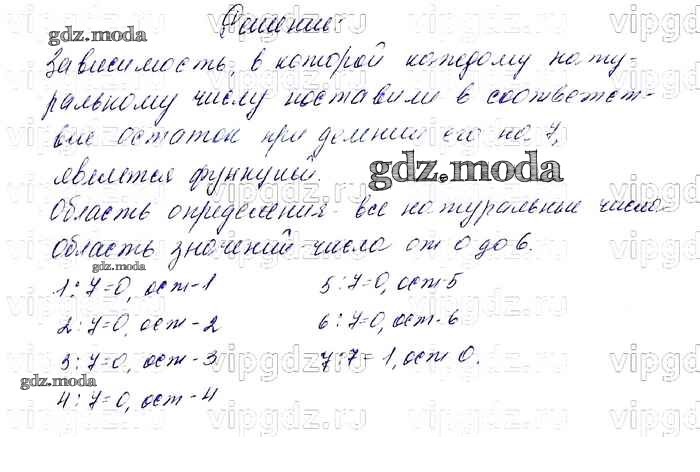 Решение:
Зависимость, в которой каждому нату-
ральному числу поставили в соответст-
вие остаток при делении его на 7,
является функцией.
Область определения - все натуральные числа.
Область значений - числа от 0 до 6.
1 : 7 = 0, ост - 1
5 : 7 = 0, ост - 5
2 : 7 = 0, ост - 2
6 : 7 = 0, ост - 6
3 : 7 = 0, ост - 3
7 : 7 = 1, ост 0.
4 : 7 = 0, ост - 4
gdz.moda
gdz.moda
gdz.moda
gdz.moda
vipgdz.ru